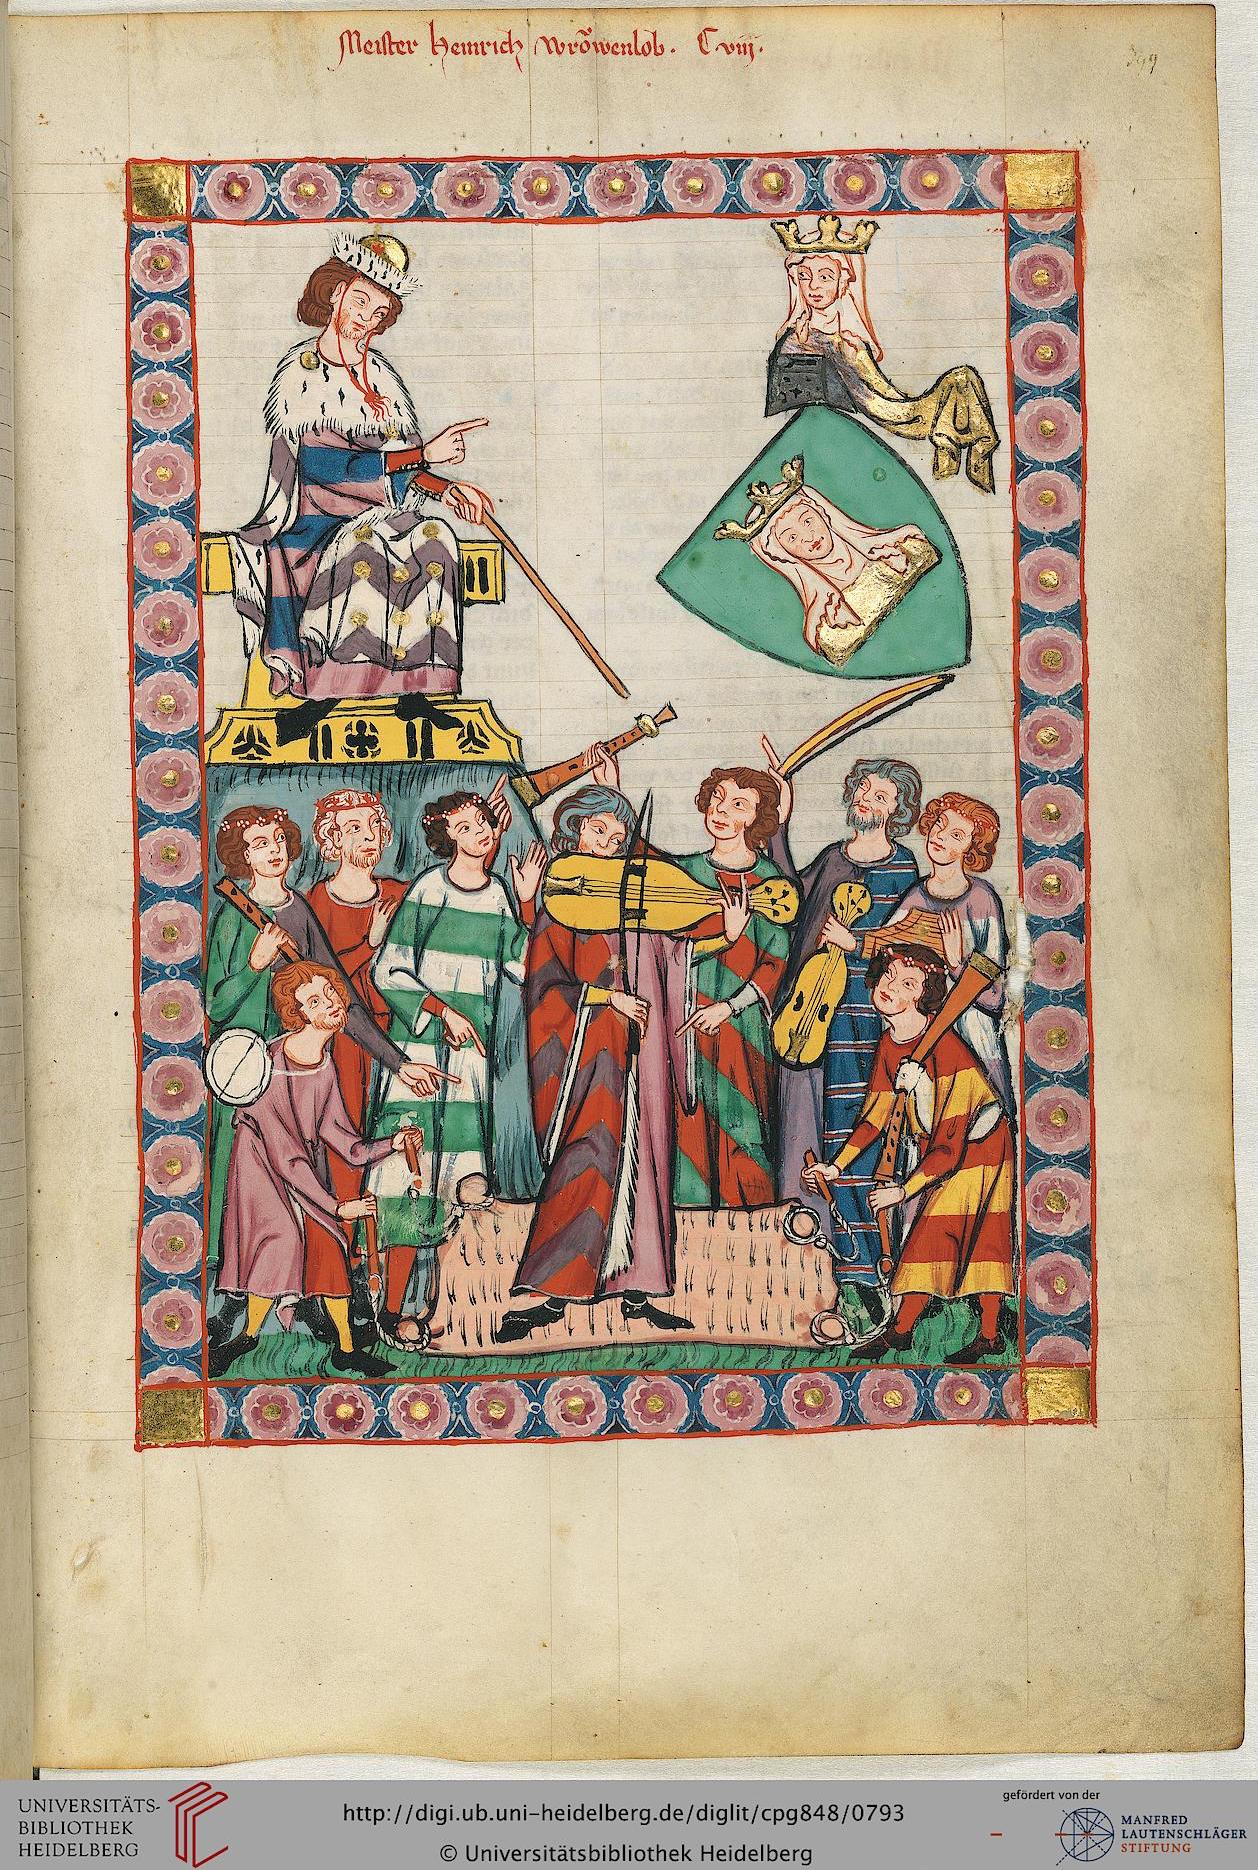 Meister Heinrich Vrǒwenlob. C viij.
399
UNIVERSITÄTS-
BIBLIOTHEK
HEIDELBERG
http://digi.ub.uni-heidelberg.de/diglit/cpg848/0793
© Universitätsbibliothek Heidelberg
gefördert von der
MANFRED
LAUTENSCHLÄGER
STIFTUNG